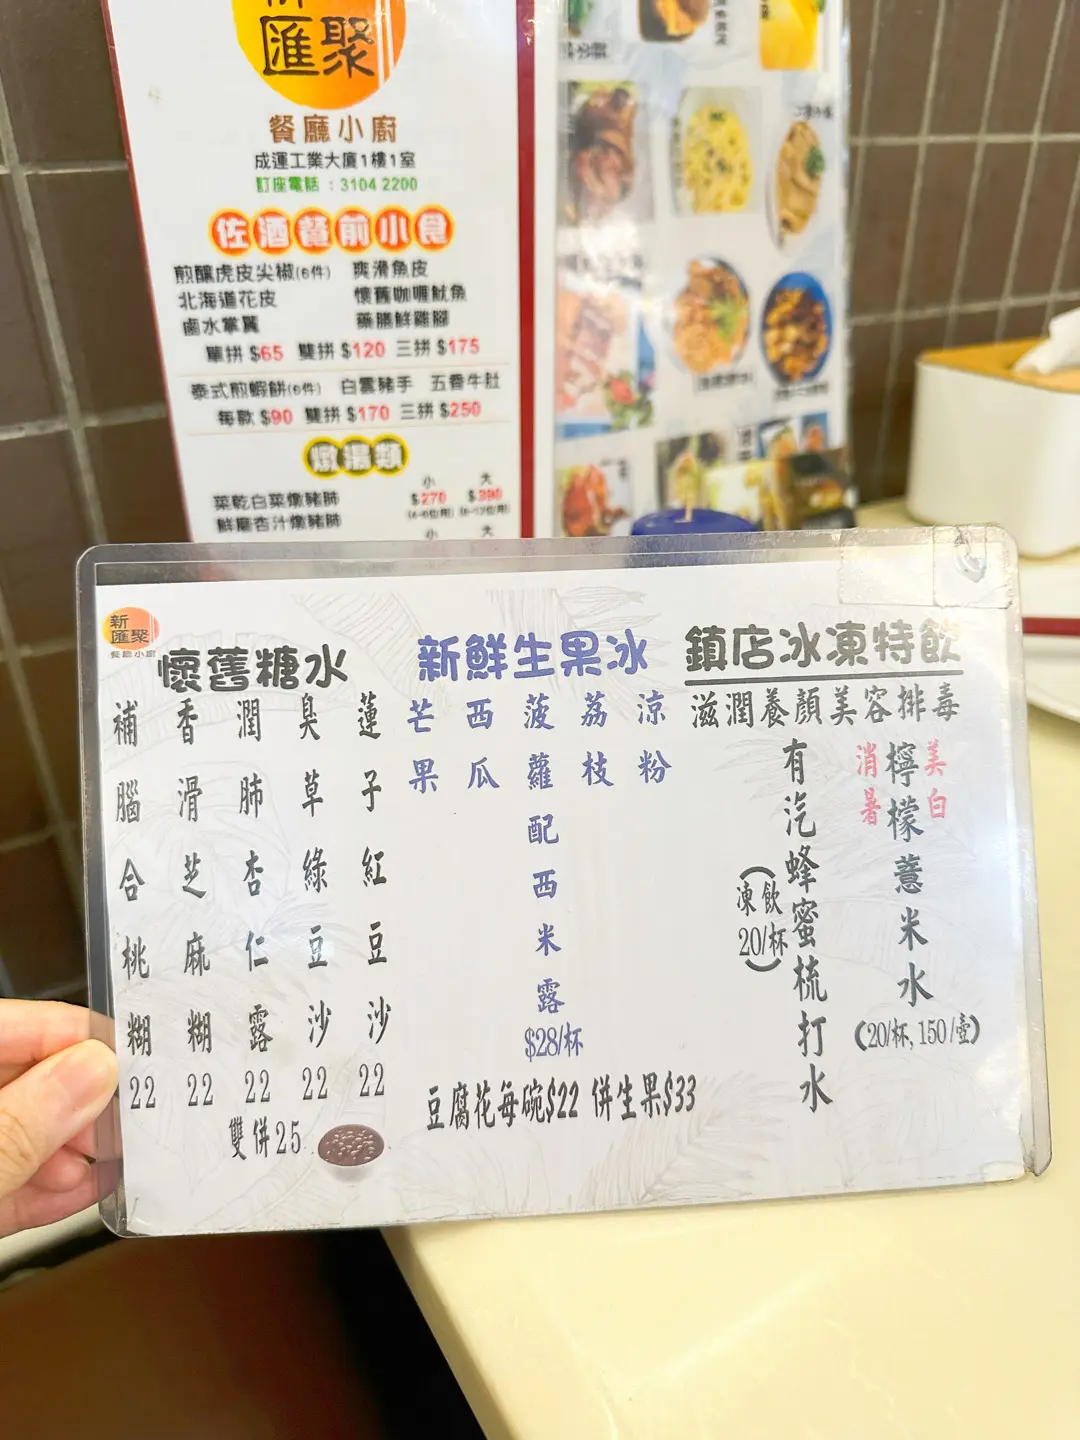 匯聚
餐廳小廚
成運工業大廈1樓1室
訂座電話：3104 2200
佐酒餐前小食
煎釀虎皮尖椒(6件) 爽滑魚皮
北海道花皮 懷舊咖喱魷魚
鹵水掌翼 藥膳鮮雞腳
單拼 $65 雙拼 $120 三拼 $175
泰式煎蝦餅(6件) 白雲豬手 五香牛肚
每款 $90 雙拼 $170 三拼 $250
燉湯類
小 大
菜乾白菜燉豬肺 $270 $390
鮮磨杏汁燉豬肺
小 大
新
匯聚
餐廳小廚
懷舊糖水
補腦合桃糊 22
香滑芝麻糊 22
潤肺杏仁露 22
臭草綠豆沙 22
蓮子紅豆沙 22
雙併25
新鮮生果冰
芒果
西瓜
菠蘿
荔枝
涼粉
配西米露
$28/杯
豆腐花每碗$22 併生果$33
鎮店冰凍特飲
滋潤養顏美容排毒
有汽蜂蜜梳打水
(凍飲20/杯)
消暑
檸檬薏米水
美白
(20/杯, 150/壺)